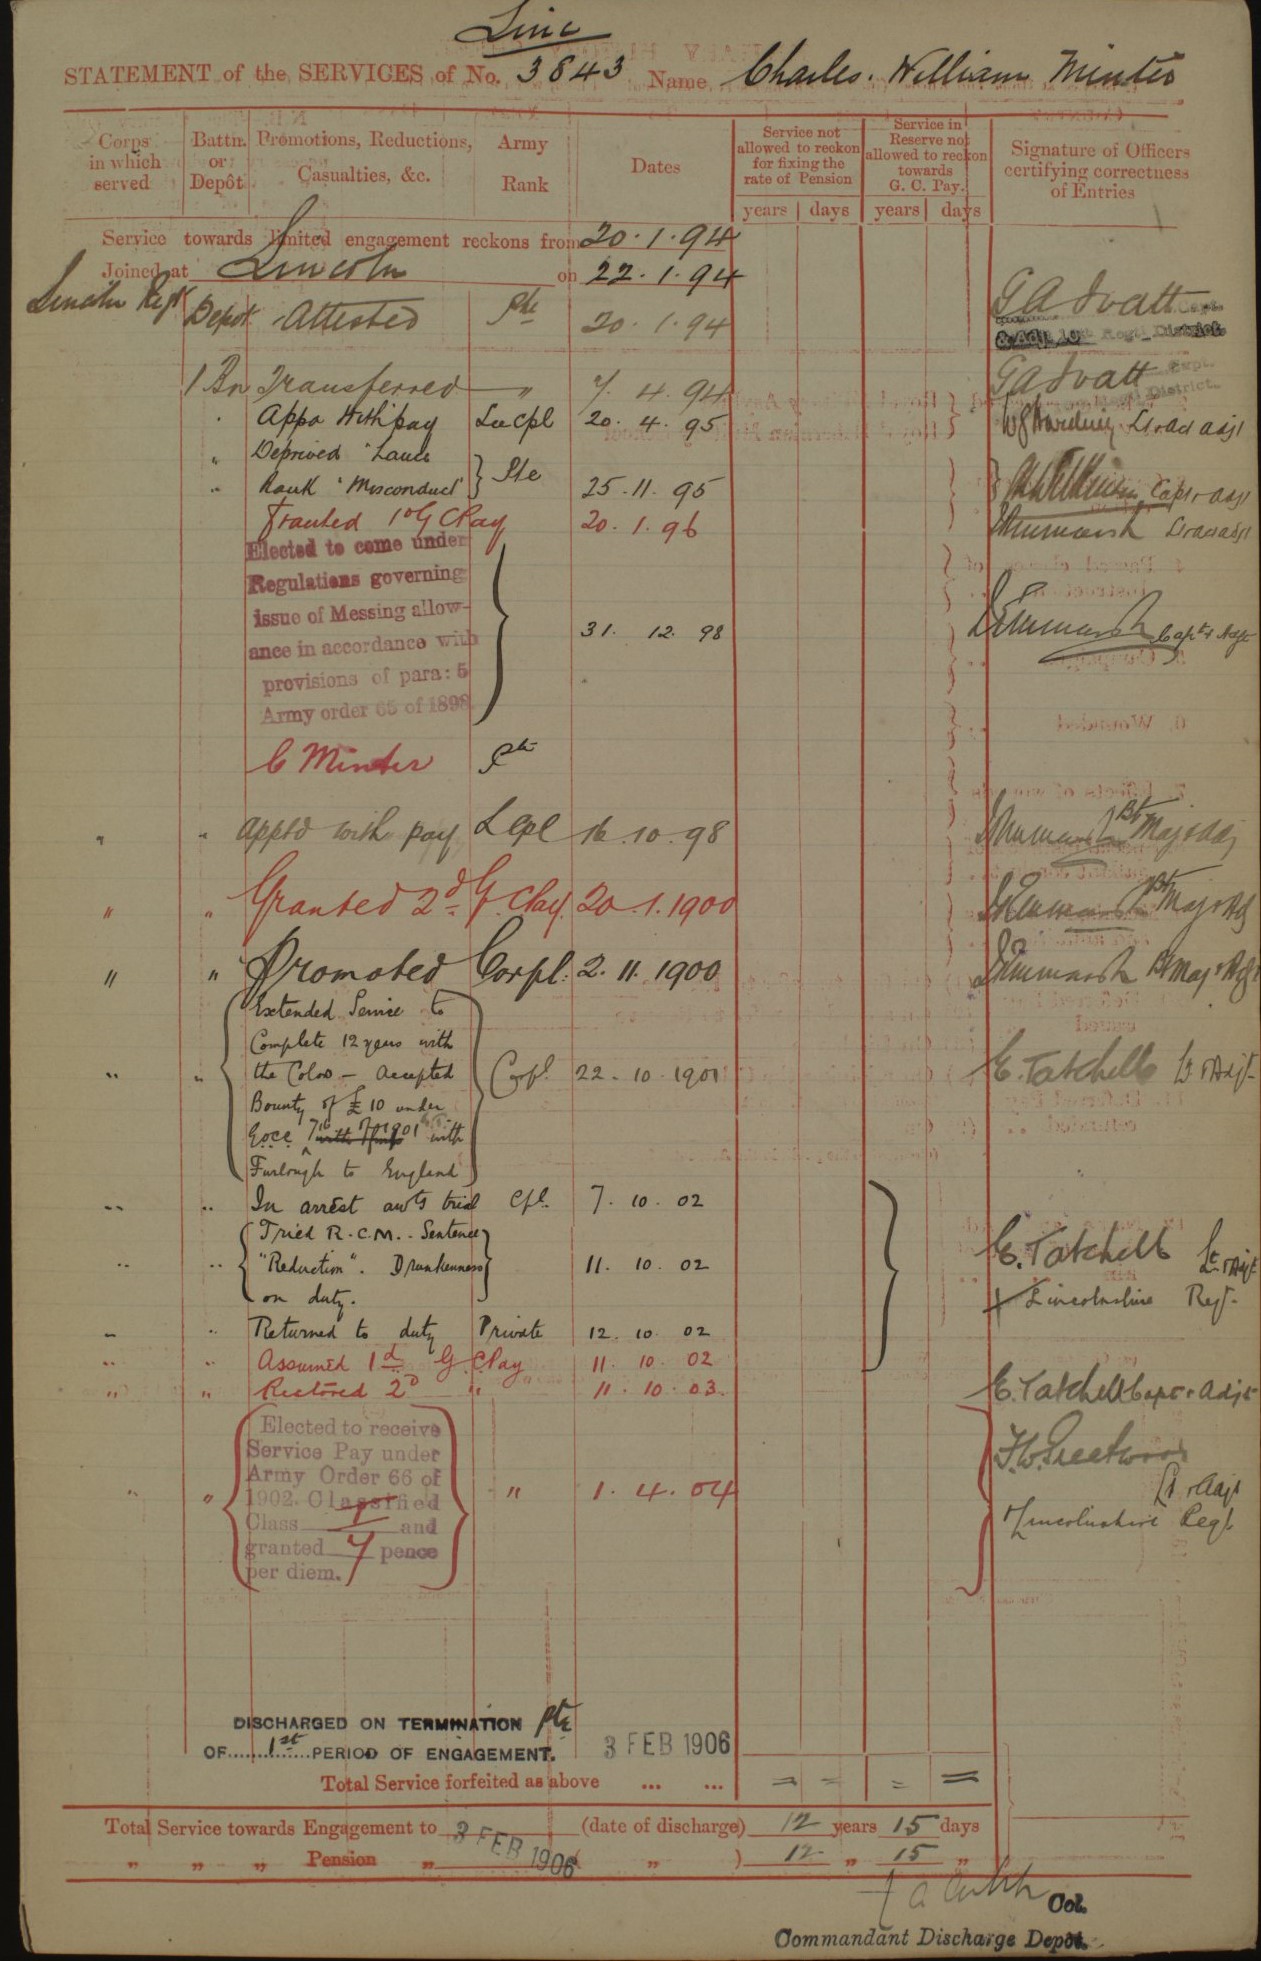 Linc
STATEMENT of the SERVICES of No. 3843 Name Charles. William Minter
Corps in which served
Battn. or Depôt
Promotions, Reductions, Casualties, &c.
Army Rank
Dates
Service not allowed to reckon for fixing the rate of Pension
Service in Reserve not allowed to reckon towards G. C. Pay.
Signature of Officers certifying correctness of Entries
years days years days
Service towards limited engagement reckons from 20.1.94
Joined at Lincoln on 22.1.94
Lincoln Regt Depot Attested Pte 20.1.94 Capt.
& Adjt 10th Regtl District.
1 Bn Transferred " 7.4.94 Capt.
Regtl District.
. Appd With pay Lce Cpl 20.4.95 Lt & ad adjt
" Deprived Lance
" Rank "Misconduct" } Pte 25.11.95 Capt & adjt
Granted 1st G C Pay 20.1.96 Lt & ad adjt
Elected to come under
Regulations governing
issue of Messing allow-
ance in accordance with
provisions of para: 5
Army order 65 of 1898
31. 12. 98 Capt & Adjt
C Minter Pte
" " appt'd with pay L Cpl 16.10.98 Bt Maj & Adj
" " Granted 2d G. C Pay. 20.1.1900 Bt Maj & Adj
" " Promoted Corpl. 2.11.1900 Bt Maj & Adjt
Extended Service to
Complete 12 years with
" " the Colors – Accepted Corpl. 22.10.1901 E. Tatchell Lt & Adjt
Bounty of £10 under
with
Furlough to England
" " In arrest awtg trial Cpl. 7.10.02
Tried R.C.M. - Sentence
" " "Reduction". Drunkenness 11.10.02 E. Tatchell Lt. & Adjt.
on duty. Lincolnshire Regt.
" " Returned to duty Private 12.10.02
" " Assumed 1d G. C Pay 11.10.02
" " Restored 2D " 11.10.03. E. Tatchell Capt & Adjt
Elected to receive
Service Pay under
Army Order 66 of
1902. Classified
Class I and
granted 7 pence
per diem.
" " " 1.4.04
Lt & Adjt
Lincolnshire Regt.
DISCHARGED ON TERMINATION Pte
OF......1st......PERIOD OF ENGAGEMENT. 3 FEB 1906
Total Service forfeited as above ... ... = = = =
Total Service towards Engagement to 3 FEB 1906 (date of discharge) 12 years 15 days
" " " Pension " " ) 12 " 15 "
Col.
Commandant Discharge Depôt.